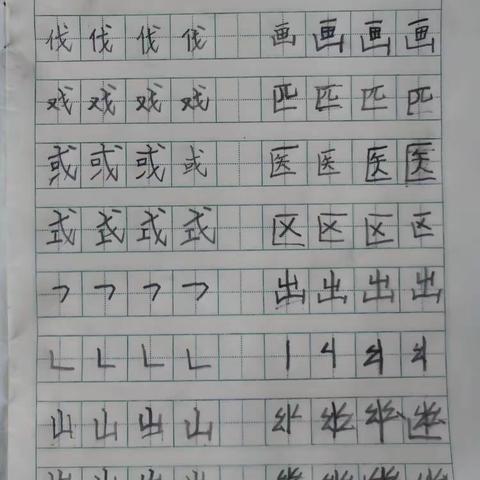 伐伐伐伐 画画画画
戏戏戏戏 匹匹匹匹
或或或或 医医医医
式式式式 区区区区
㇇㇇㇇㇇ 出出出出
𠃊𠃊𠃊𠃊
山山山山